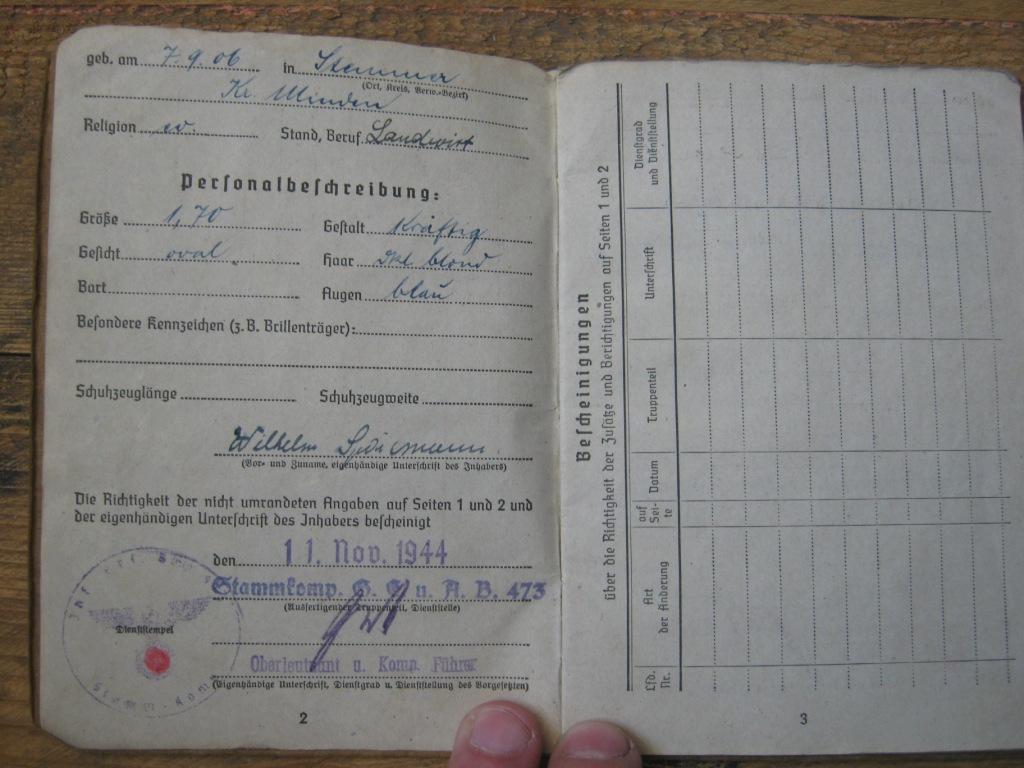 geb. am 7.9.06 in Stemmer
(Ort, Kreis, Verw.-Bezirk)
Kr. Minden
Religion ev. Stand, Beruf Landwirt
Personalbeschreibung:
Größe 1,70 Gestalt kräftig
Gesicht oval Haar dkl blond
Bart Augen blau
Besondere Kennzeichen (z.B. Brillenträger):
Schuhzeuglänge Schuhzeugweite
Wilhelm
(Vor- und Zuname, eigenhändige Unterschrift des Inhabers)
Die Richtigkeit der nicht umrandeten Angaben auf Seiten 1 und 2 und
der eigenhändigen Unterschrift des Inhabers bescheinigt
den 11. Nov. 1944
Stammkomp. G. E. u. A. B. 473
(Ausfertigender Truppenteil, Dienststelle)
Dienststempel
Oberleutnant u. Komp. Führer
(Eigenhändige Unterschrift, Dienstgrad u. Dienststellung des Vorgesetzten)
2
Bescheinigungen
über die Richtigkeit der Zusätze und Berichtigungen auf Seiten 1 und 2
Lfd. Nr.
Art der Änderung
auf Sei-te
Datum
Truppenteil
Unterschrift
Dienstgrad und Dienststellung
3